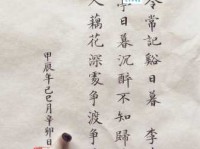 令常記谿日暮 李
亭日暮沉醉不知歸
入藕花深處爭渡爭
甲辰年己巳月辛卯日